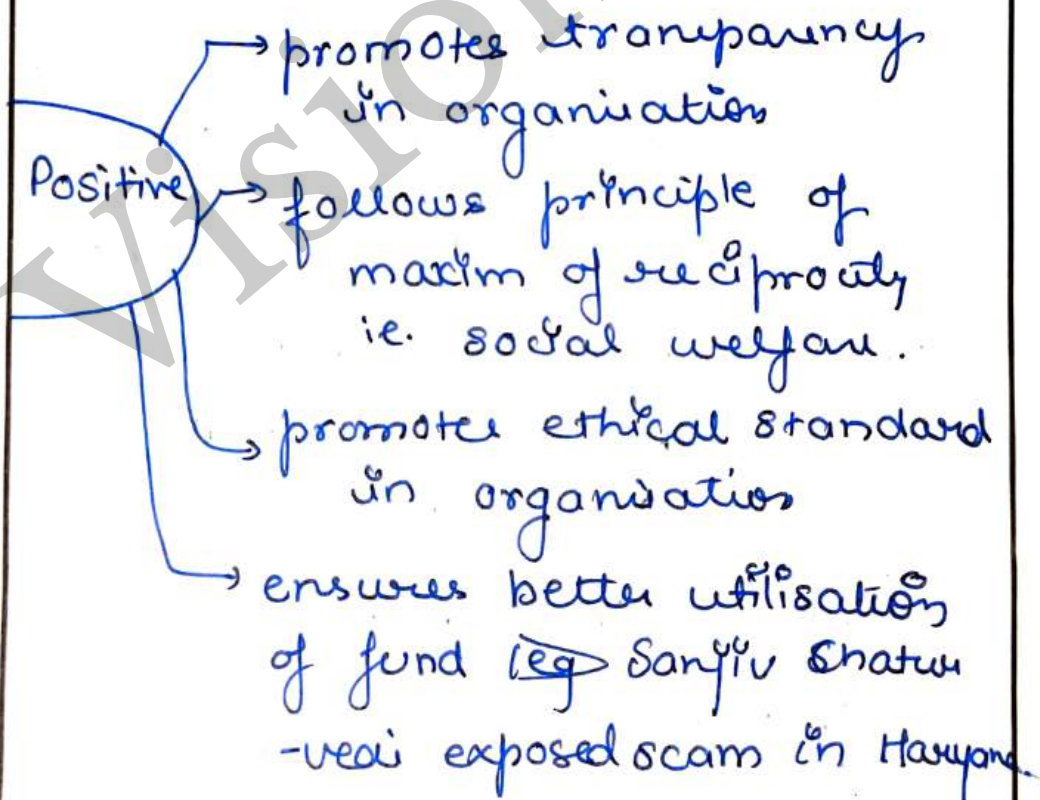 promotes transparency
in organisation
Positive
follows principle of
maxim of reciprocity
ie. social welfare.
promotes ethical standard
in organisation
ensures better utilisation
of fund eg Sanjiv Chatur
-vedi exposed scam in Haryana.
Vision